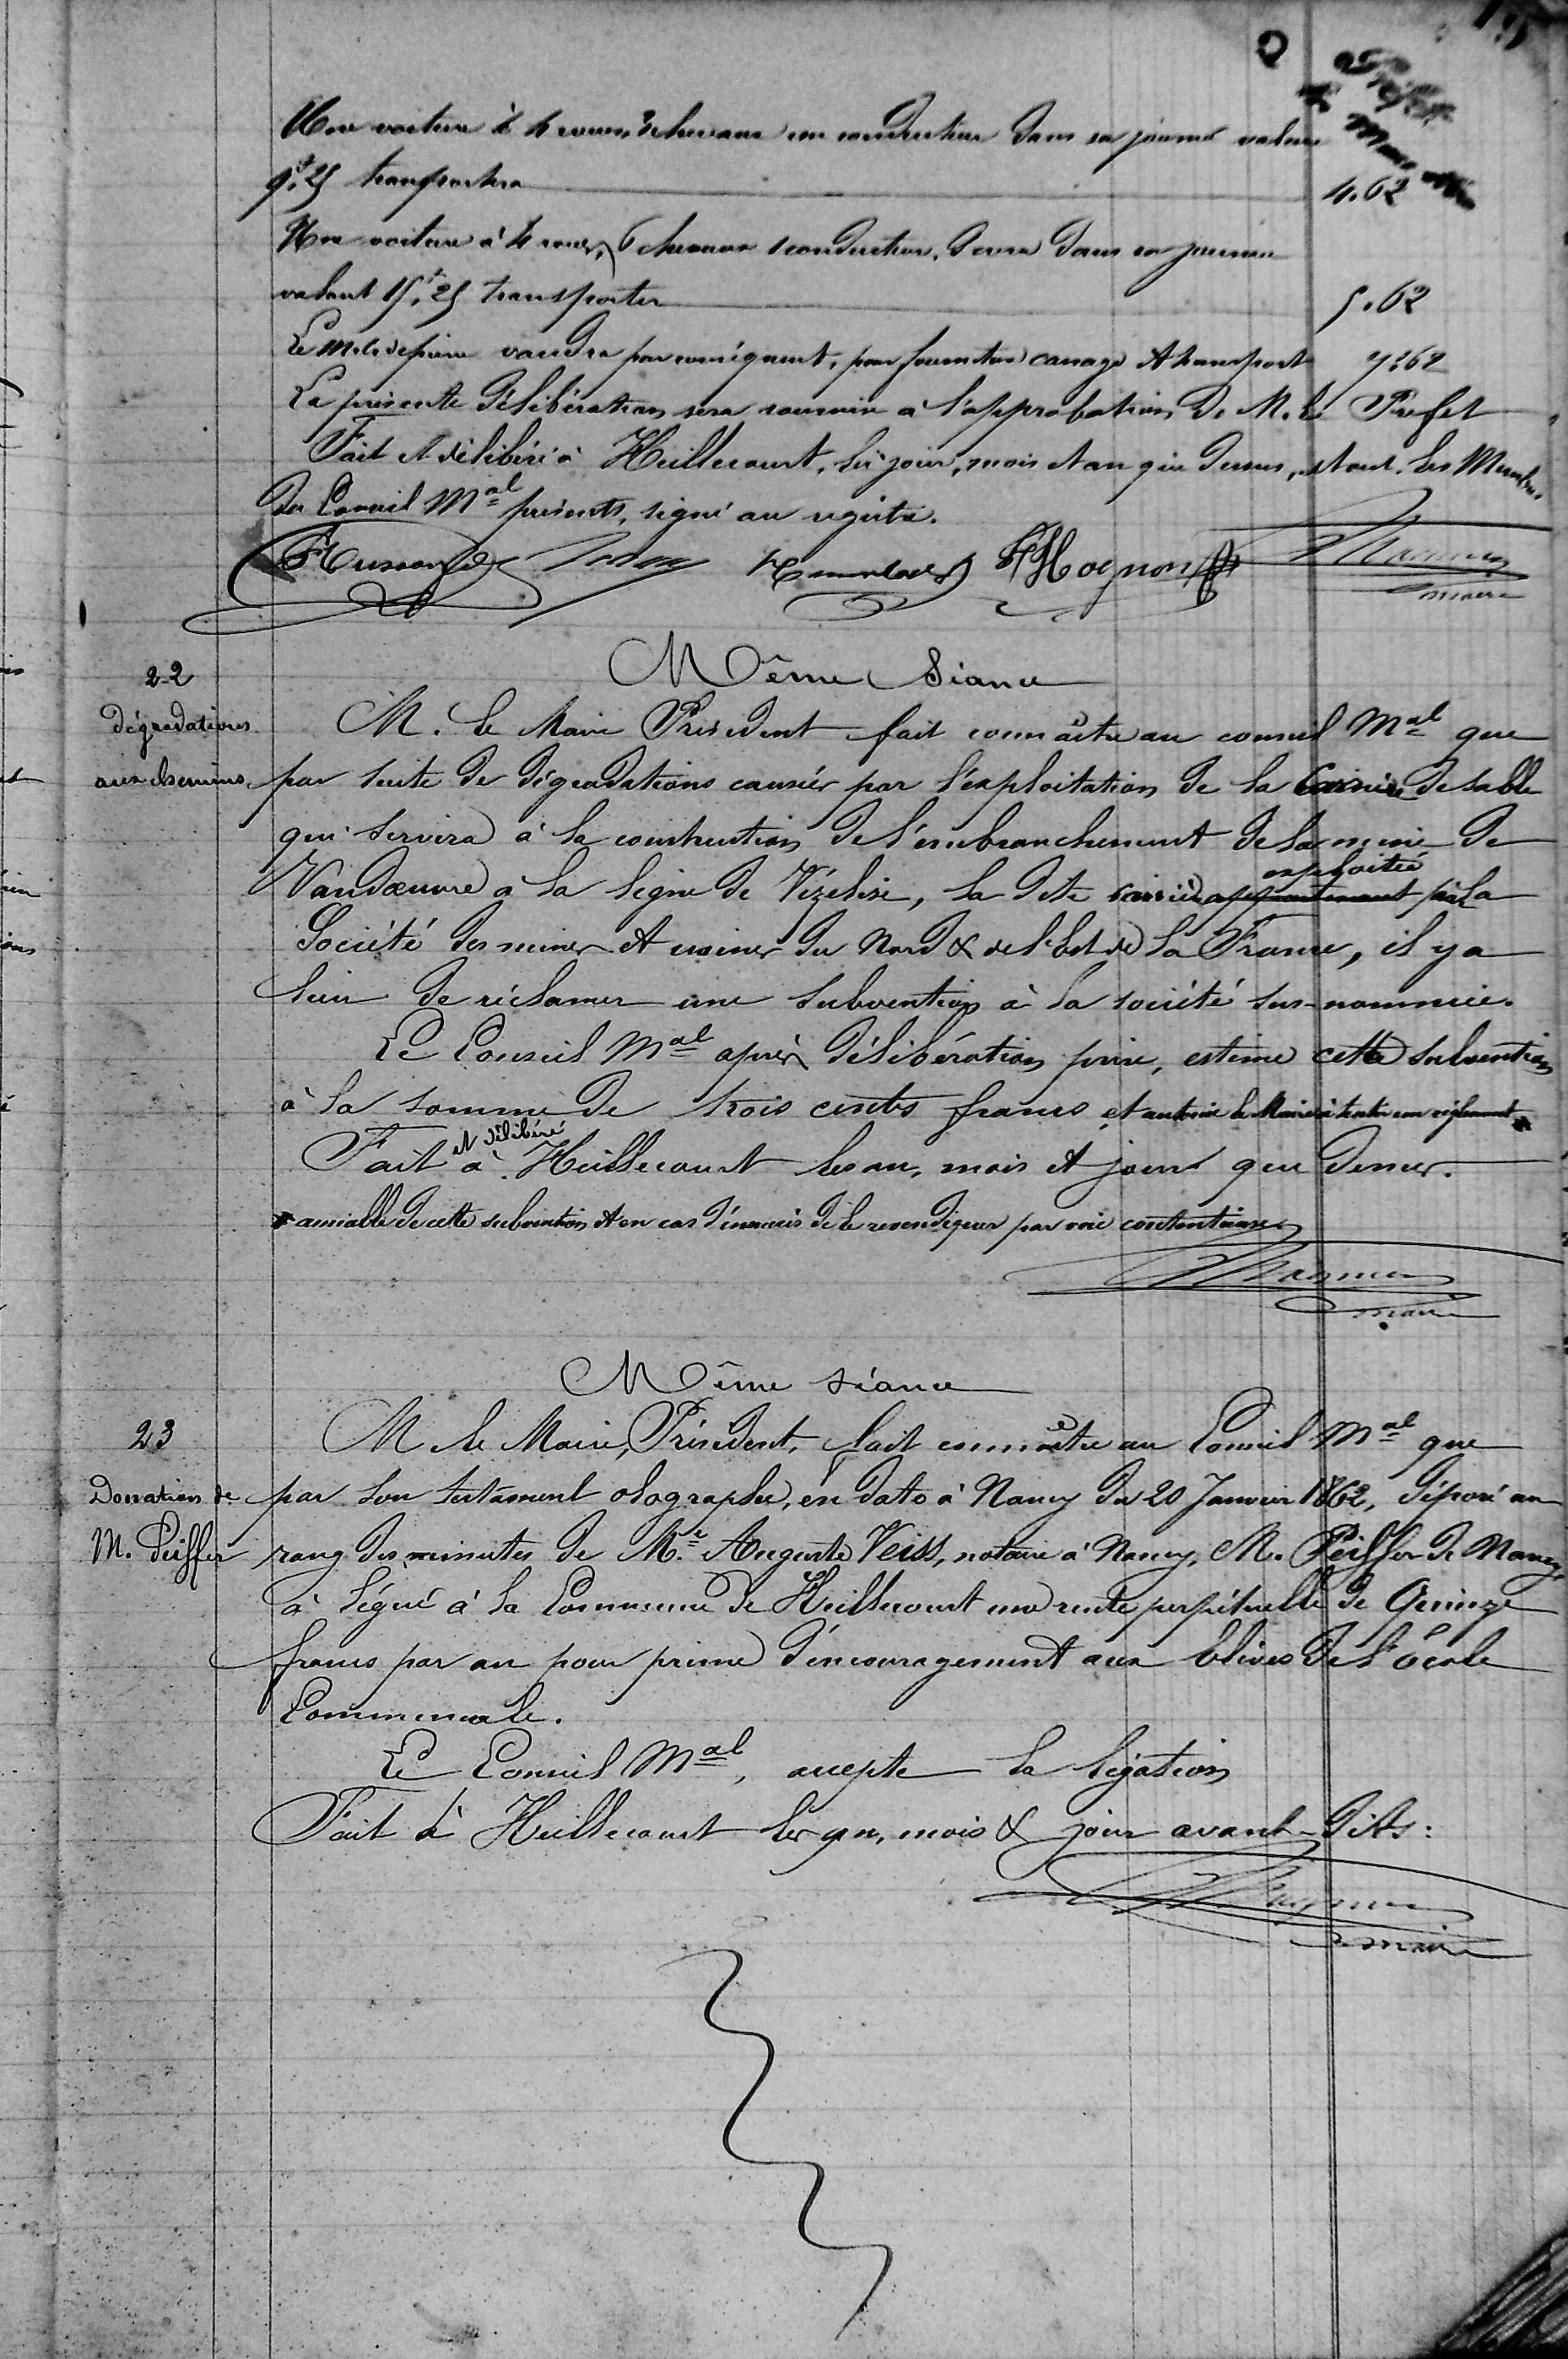 Une voiture à 4 roues, 3 chevaux un conducteur dans sa journée valant
9f,25 transportera 4.62
Une voiture à 4 roues, 6 chevaux 1 conducteur, devra dans sa journée
valant 15f,25 transporter 5.62
Le m.c. de pierre vaudra par conséquent, pour fourniture cassage et transport 7f62
La présente délibération sera soumise à l'approbation de M. le Préfet
Fait et délibéré à Heillecourt, les jour, mois et an que dessus, et ont les Membres
du Conseil Mal présents, signé au registre.
FHusson Hognon
maire
Même Séance
22
dégradations
aux chemins
M. le Maire Président fait connaître au conseil Mal que
par suite de dégradations causées par l'exploitation de la Carrière de sable
qui servira à la construction de l'embranchement de la mine de
Vandœuvre à la ligne de Vézelise, la dite carrière exploitée par la
Société des mines et usines du Nord & de l'Est de la France, il y a
lieu de réclamer une subvention à la société sus-nommée.
Le Conseil Mal après délibération prise, estime cette subvention
à la somme de trois cents francs, et autorise le Maire à tenter un règlement
Fait et délibéré à Heillecourt les an, mois et jour que dessus.
amiable de cette subvention et en cas d'insuccès de la revendiquer par voie contentieuse
maire
Même séance
23
Donation de
M. Peiffer
M le Maire, Président, fait connaître au Conseil Mal que
par son testament olographe, en date à Nancy du 20 Janvier 1862, déposé au
rang des minutes de Me Auguste Veiss, notaire à Nancy, M. Peiffer de Nancy,
a légué à la Commune de Heillecourt une rente perpétuelle de Quinze
francs par an pour prime d'encouragement aux Elèves de l'école
Communale.
Le Conseil Mal, accepte la légation
Fait à Heillecourt les an, mois & jour avant-dits:
maire